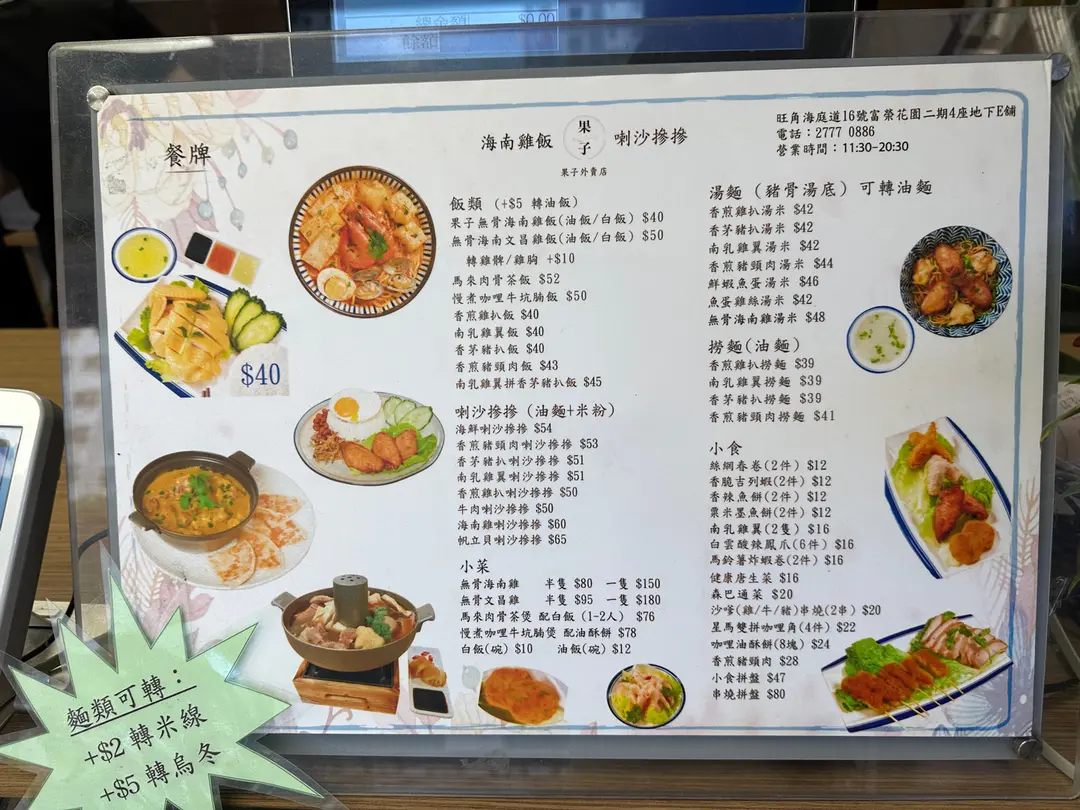 總金額 $0.00
餘額
餐牌
海南雞飯 果子 喇沙摻摻
果子外賣店
旺角海庭道16號富榮花園二期4座地下E舖
電話：2777 0886
營業時間：11:30-20:30
$40
飯類 (+$5 轉油飯)
果子無骨海南雞飯(油飯/白飯) $40
無骨海南文昌雞飯(油飯/白飯) $50
轉雞髀/雞胸 +$10
馬來肉骨茶飯 $52
慢煮咖哩牛坑腩飯 $50
香煎雞扒飯 $40
南乳雞翼飯 $40
香茅豬扒飯 $40
香煎豬頸肉飯 $43
南乳雞翼拼香茅豬扒飯 $45
喇沙摻摻 (油麵+米粉)
海鮮喇沙摻摻 $54
香煎豬頸肉喇沙摻摻 $53
香茅豬扒喇沙摻摻 $51
南乳雞翼喇沙摻摻 $51
香煎雞扒喇沙摻摻 $50
牛肉喇沙摻摻 $50
海南雞喇沙摻摻 $60
帆立貝喇沙摻摻 $65
小菜
無骨海南雞 半隻 $80 一隻 $150
無骨文昌雞 半隻 $95 一隻 $180
馬來肉骨茶煲 配白飯 (1-2人) $76
慢煮咖哩牛坑腩煲 配油酥餅 $78
白飯(碗) $10 油飯(碗) $12
湯麵 (豬骨湯底) 可轉油麵
香煎雞扒湯米 $42
香茅豬扒湯米 $42
南乳雞翼湯米 $42
香煎豬頸肉湯米 $44
鮮蝦魚蛋湯米 $46
魚蛋雞絲湯米 $42
無骨海南雞湯米 $48
撈麵(油麵)
香煎雞扒撈麵 $39
南乳雞翼撈麵 $39
香茅豬扒撈麵 $39
香煎豬頸肉撈麵 $41
小食
絲網春卷(2件) $12
香脆吉列蝦(2件) $12
香辣魚餅(2件) $12
粟米墨魚餅(2件) $12
南乳雞翼(2隻) $16
白雲酸辣鳳爪(6件) $16
馬鈴薯炸蝦卷(2件) $16
健康唐生菜 $16
森巴通菜 $20
沙嗲(雞/牛/豬)串燒(2串) $20
星馬雙拼咖哩角(4件) $22
咖哩油酥餅(8塊) $24
香煎豬頸肉 $28
小食拼盤 $47
串燒拼盤 $80
麵類可轉：
+$2 轉米線
+$5 轉烏冬